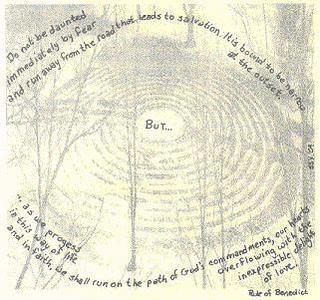 Do not be daunted
immediately by fear
and run away from the road that leads to salvation. It is bound to be narrow
at the outset.
But...
.. as we progess
in this way of life
and in faith, we shall run on the path of God's commandments, our hearts
overflowing with the
inexpressible delight
of love.
Rule of Benedict